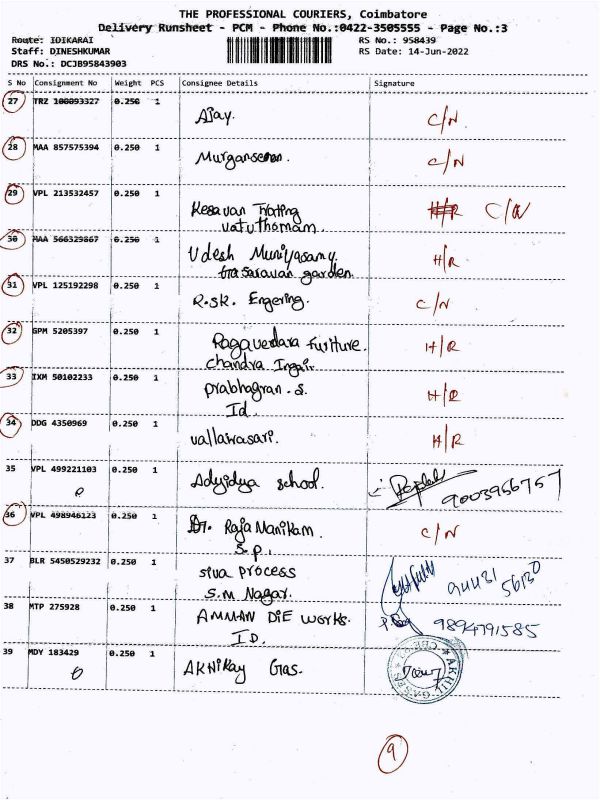 THE PROFESSIONAL COURIERS, Coimbatore
Delivery Runsheet - PCM - Phone No.:0422-3505555 - Page No.:3
Route: IDIKARAI RS No.: 958439
Staff: DINESHKUMAR RS Date: 14-Jun-2022
DRS No.: DCJB95843903
S No Consignment No Weight PCS Consignee Details Signature
27 TRZ 100093327 0.250 1 Ajay. C/N
28 MAA 857575394 0.250 1 C/N
29 VPL 213532457 0.250 1 Kesavan H/R C/N
30 MAA 566329867 0.250 1 Udesh Muniyasamy H/R
garden.
31 VPL 125192298 0.250 1 R.sk. Engering. C/N
32 GPM 5205397 0.250 1 Furiture. H/R
chandra
33 IXM 50102233 0.250 1 prabhagran.s. H/R
Id.
34 DDG 4350969 0.250 1 H/R
35 VPL 499221103 0.250 1 school. 9003956757
36 VPL 498946123 0.250 1 Dr. Raja Manikam C/N
S.P.
37 BLR 5450529232 0.250 1 siva process 94431 56130
S.M Nagar.
38 MTP 275928 0.250 1 AMMAN DIE works. 9894791585
I.D.
39 MDY 183429 0.250 1 Gas.
9